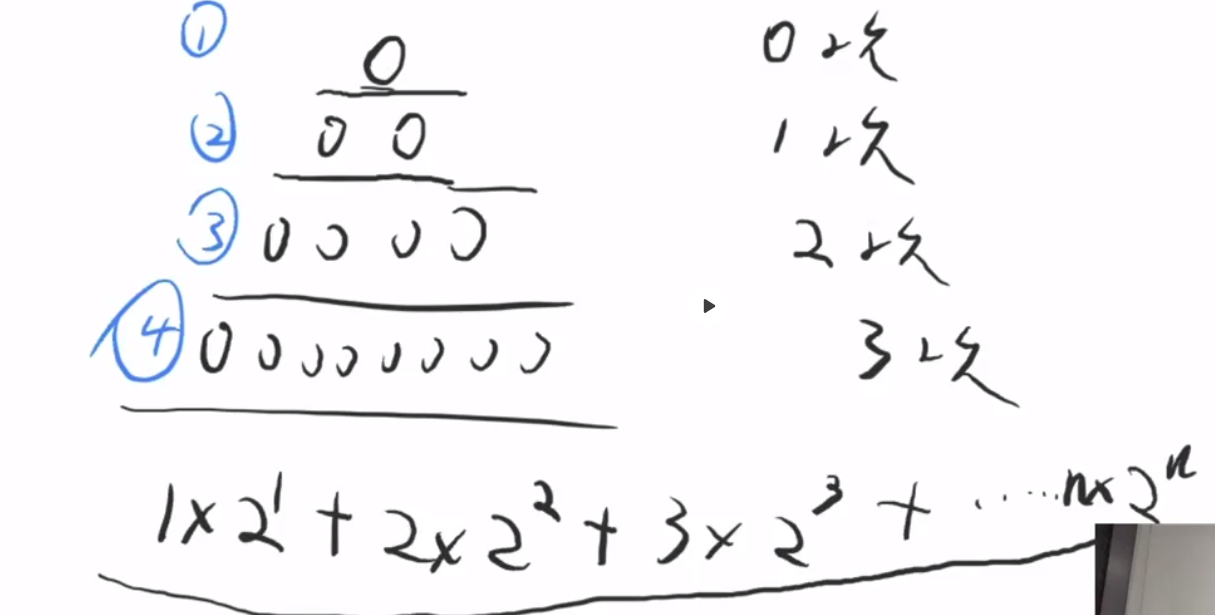 ① 0 0次
② 0 0 1次
③ 0 0 0 0 2次
④ 0 0 0 0 0 0 0 0 3次
1×2¹ + 2×2² + 3×2³ + ⋯⋯ n×2ⁿ